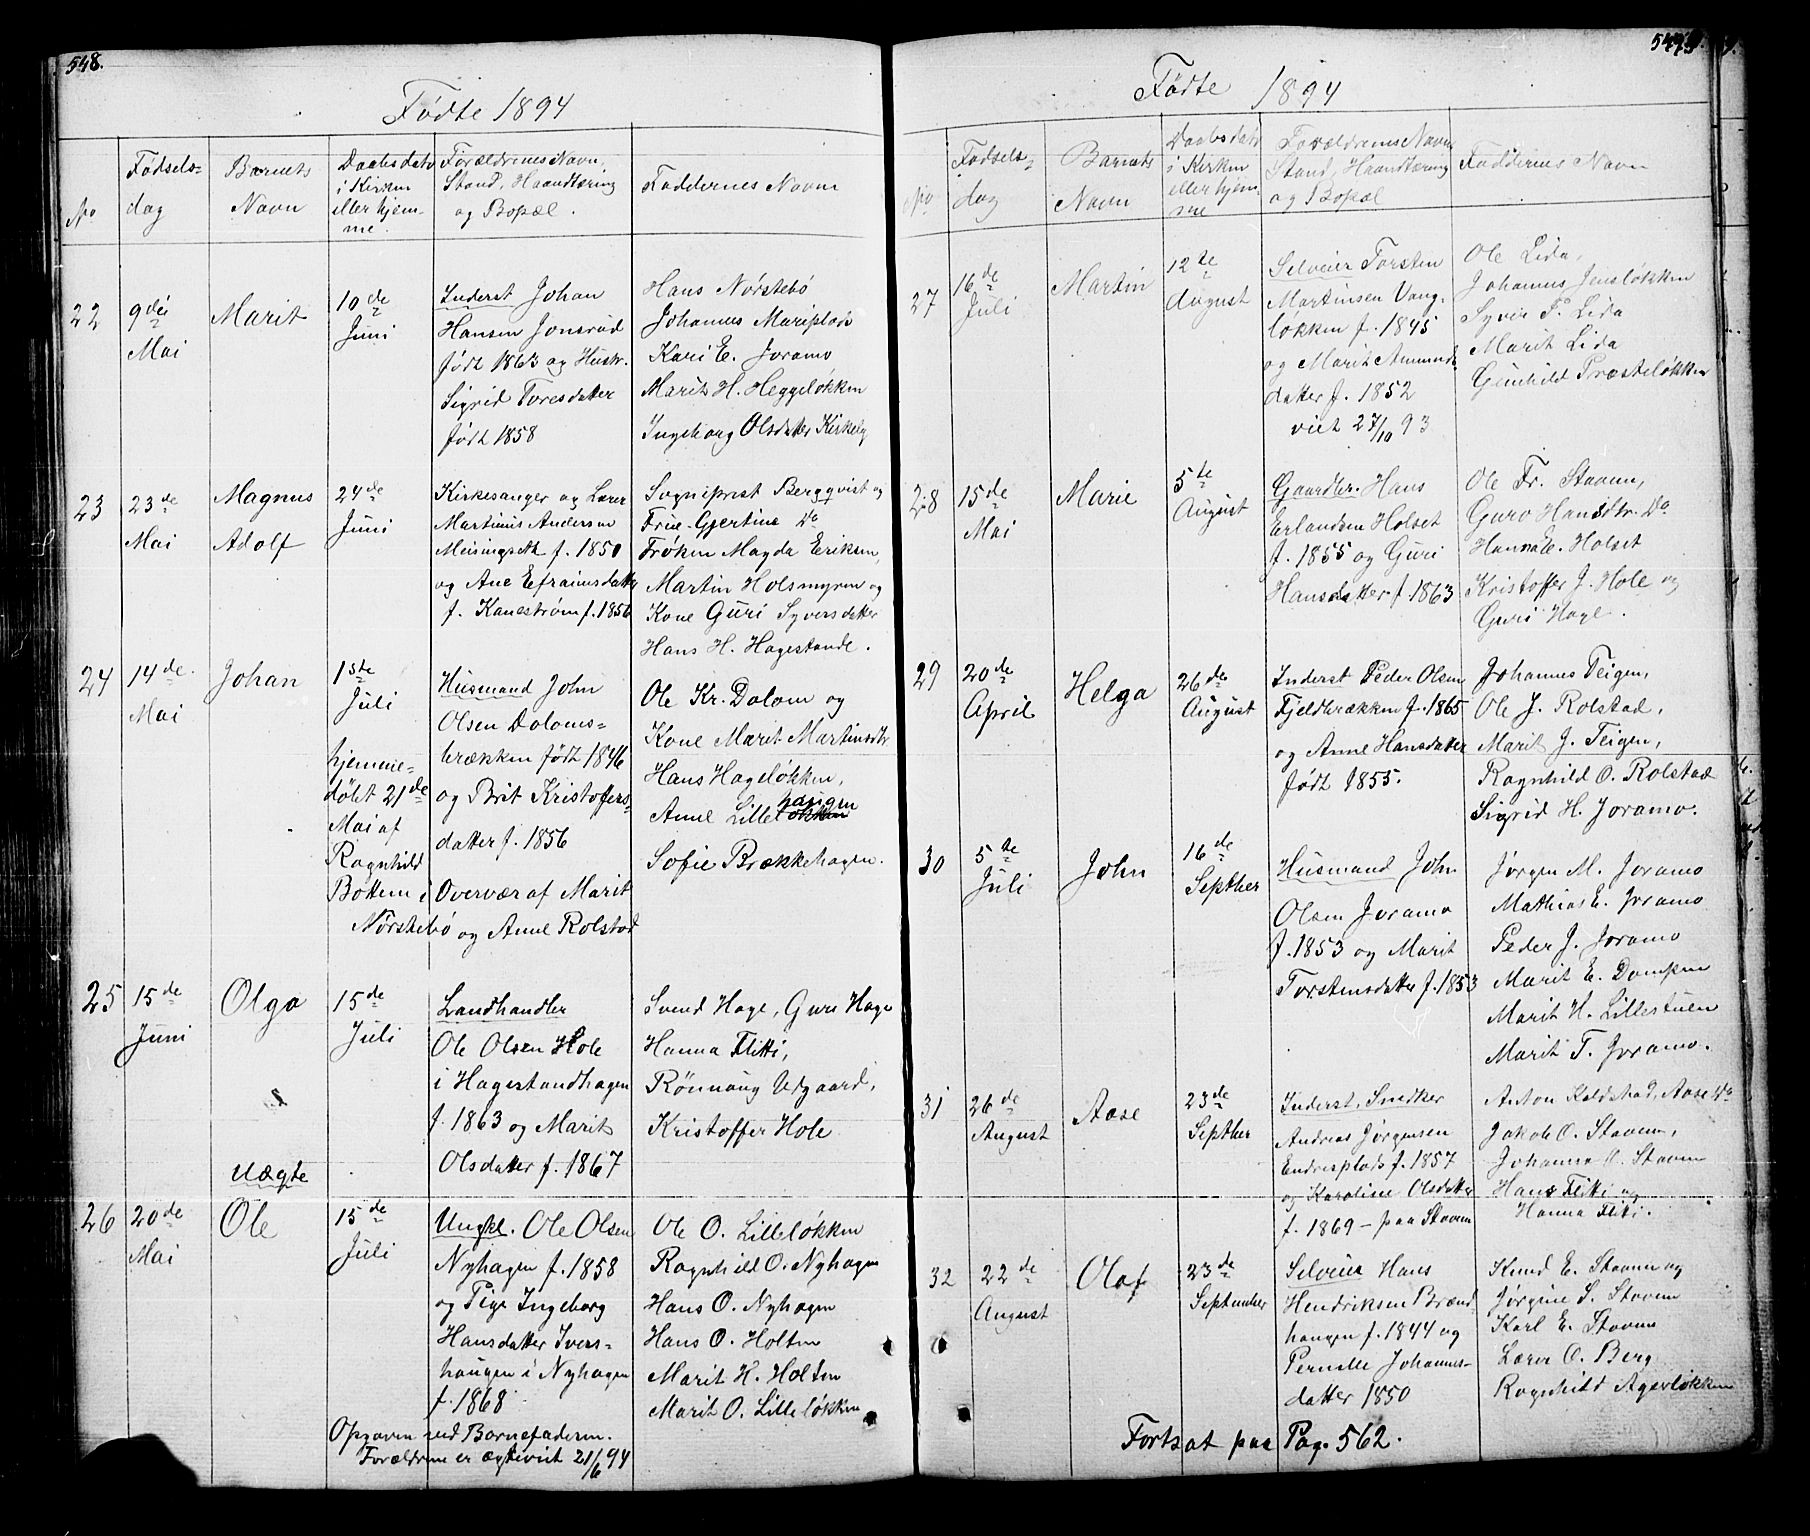 548.
Fødte 1894
No
Fødsels-
dag
Barnets
Navn
Daabsdato
i Kirken
eller hjem-
me.
Forældrenes Navn,
Stand, Haandtæring
og Bopæl.
Faddernes Navn
22
9de
Mai
Marit
10de
Juni
Inderst Johan
Hansen Jonsrud
født 1863 og Hustr.
Sigrid Toresdatter
født 1858
Hans Nørstebø
Johannes Mariplads
Kari E. Joramo
Marit H. Heggeløkken
Ingeborg Olsdatter Kirkelg
23
23de
Mai
Magnus
Adolf
24de
Juni
Kirkesanger og Lærer
Martinus Andersen
Meisingseth f. 1850
og Ane Efraimsdatter
f. Kanestrøm f. 1856
Sogneprest Bergqvist og
Frue Gjertine Do
Frøken Magda Eriksen,
Martin Holsmyren og
Kone Guri Syversdatter
Hans H. Hagestande.
24
14de
Mai
Johan
1ste
Juli
hjemme-
døbt 21de
Mai af
Ragnhild
Bottem i
Husmand John
Olsen Doloms-
brækken født 1846
og Brit Kristofers-
datter f. 1856
Overvær af Marit
Nørstebø og Anne Rolstad
Ole Kr. Dalom og
Kone Marit Martinsdtr
Hans Hageløkken,
haugen
Anne Lilleløkken
Sofie Brækkehagen.
25
15de
Juni
Olga
15de
Juli
Landhandler
Ole Olsen Hole
i Hagestandhagen
f. 1863 og Marit
Olsdatter f. 1867
Svend Hage, Guri Hage
Hanna Flitti,
Rønnaug Udgaard,
Kristoffer Hole
Uægte
26
20de
Mai
Ole
15de
Juli
Ungkl. Ole Olsen
Nyhagen f. 1858
og Pige Ingeborg
Hansdatter Ivers-
haugen i Nyhagen
f. 1868
Ole O. Lilleløkken
Ragnhild O. Nyhagen
Hans O. Nyhagen
Hans O. Holten
Marit H. Holten
Marit O. Lilleløkken
Opgaven ved Barnefaderen.
Forældrene er ægteviet 21/6 94
549.
Fødte 1894
No
Fødsels-
dag
Barnets
Navn
Daabsdato
i Kirken
eller hjem-
me
Forældrenes Navn
Stand, Haandtæring
og Bopæl
Faddernes Navn
27
16de
Juli
Martin
12te
August
Selveier Torsten
Martinsen Vang-
løkken f. 1845
og Marit Amunds
datter f. 1852
viet 27/10 93
Ole Lida,
Johannes Jensløkken
Syver P. Lida
Marit Lida
Gunhild Præsteløkken
28
15de
Mai
Marie
5te
August
Gaardbr. Hans
Erlandsen Holset
f. 1855 og Guri
Hansdatter f. 1863
Ole Fr. Staven,
Guro Hansdtr. Do
Hanna E. Holset
Kristoffer J. Hole og
Guri Hage.
29
20de
April
Helga
26de
August
Inderst Peder Olsen
Fjeldbrækken f. 1865
og Anne Hansdatter
født 1855.
Johannes Teigen,
Ole J. Rolstad,
Marit J. Teigen,
Ragnhild O. Rolstad
Sigrid H. Joramo.
30
5te
Juli
John
16de
Septber
Husmand John
Olsen Joramo
f. 1853 og Marit
Torstensdatter f. 1853
Jørgen M. Joramo
Mathias E. Joramo
Peder J. Joramo
Marit E. Dompen
Marit H. Lillestuen
Marit T. Joramo.
31
26de
August
Aase
23de
Septber
Inderst, Snedker
Andreas Jørgensen
Endresplads f. 1857
og Karoline Olsdatter
f. 1869 – paa Staven
Anton Koldstad, Aase Do
Jakob O. Staven,
Johanna O. Staven
Hans Flitti og
Hanna Flitti.
32
22de
August
Olaf
23de
September
Selveier Hans
Hendriksen Brænd-
haugen f. 1844 og
Pernille Johannes-
datter 1850
Knud E. Staven og
Jørgine S. Staven
Karl E. Staven
Lærer O. Berg
Ragnhild Agerløkken
Fortsat paa Pag. 562.